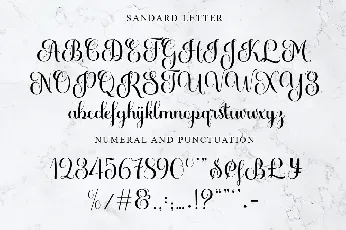 SANDARD LETTER
ABCDEFGHIJKLM
NOPQRSTUVWXYZ
abcdefghijklmnopqrstuvwxyz
NUMERAL AND PUNCTUATION
1234567890
%/#&.,:;...!?